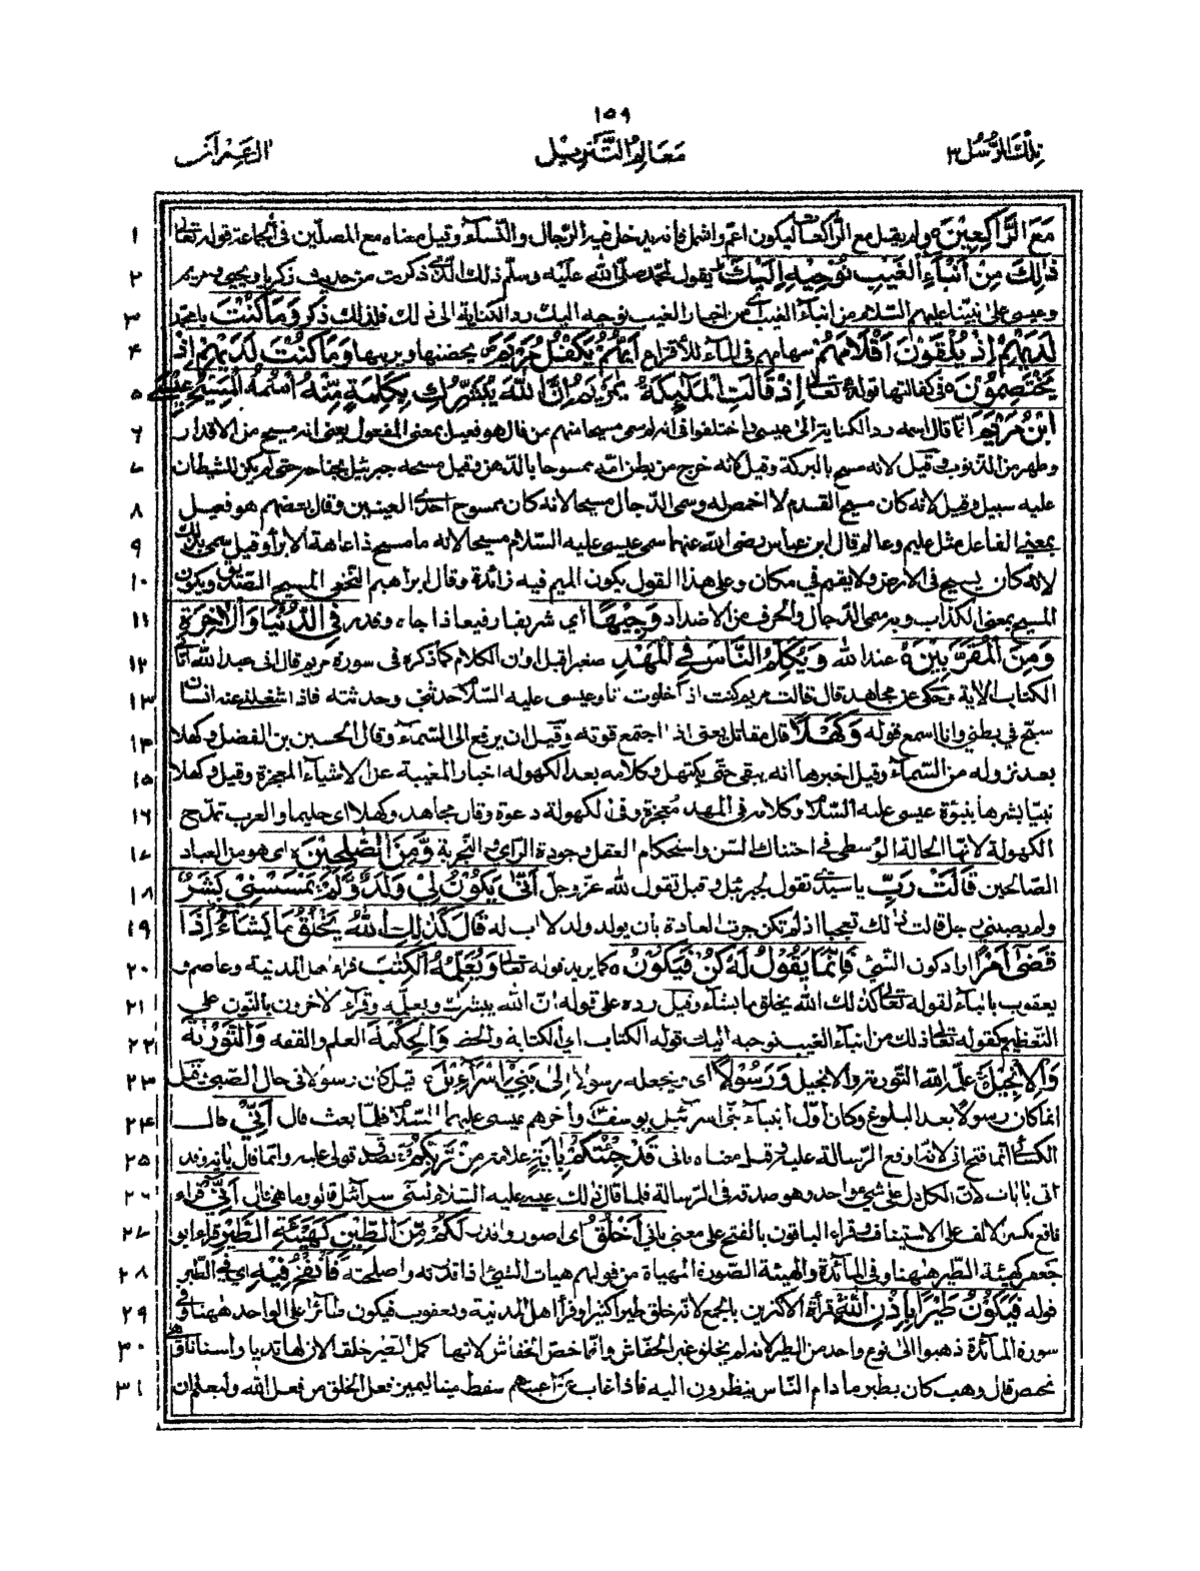 ١٥٩
تلك الرسل ٣
معالم التنزيل
ال عمران
١ مَعَ الرَّاكِعِيْنَ ولم يقل مع الراكعات ليكون اعم واشمل فانه يدخل فيه الرجال والنساء وقيل معناه مع المصلين فى الجماعة قوله تعالى
٢ ذٰلِكَ مِنْ اَنْبَآءِ الْغَيْبِ نُوْحِيْهِ اِلَيْكَ يقول لمحمد صلى الله عليه وسلم ذلك الذى ذكرت من حديث زكريا ويحيى ومريم
٣ وعيسى على نبينا عليهم السلام من انباء الغيب اى من اخبار الغيب نوحيه اليك رد الكناية الى ذلك فلذلك ذكر وَمَا كُنْتَ يا محمد
٤ لَدَيْهِمْ اِذْ يُلْقُوْنَ اَقْلَامَهُمْ سهامهم فى الماء للاقتراع اَيُّهُمْ يَكْفُلُ مَرْيَمَ يحضنها ويربيها وَمَا كُنْتَ لَدَيْهِمْ اِذْ
٥ يَخْتَصِمُوْنَ فى كفالتها قوله تعالى اِذْ قَالَتِ الْمَلٰٓئِكَةُ يٰمَرْيَمُ اِنَّ اللّٰهَ يُبَشِّرُكِ بِكَلِمَةٍ مِّنْهُ اسْمُهُ الْمَسِيْحُ عِيْسَى
٦ ابْنُ مَرْيَمَ انما قال اسمه رد الكناية الى عيسى واختلفوا فى انه لم سمى مسيحا منهم من قال هو فعيل بمعنى المفعول يعنى انه مسيح من الاقذار
٧ وطهر من الذنوب وقيل لانه مسيح بالبركة وقيل لانه خرج من بطن امه ممسوحا بالدهن وقيل مسحه جبرئيل بجناحه حتى لم يكن للشيطان
٨ عليه سبيل وقيل لانه كان مسيح القدم لا اخمص له وسمى الدجال مسيحا لانه كان ممسوح احدى العينين وقال بعضهم هو فعيل
٩ بمعنى الفاعل مثل عليم وعالم قال ابن عباس رضى الله عنهما سمى عيسى عليه السلام مسيحا لانه ما مسح ذا عاهة الا برأ وقيل سمى بذلك
١٠ لانه كان يسيح فى الارض ولا يقيم فى مكان وعلى هذا القول يكون الميم فيه زائدة وقال ابراهيم النخعى المسيح الصديق ويكون
١١ المسيح بمعنى الكذاب وبه سمى الدجال والحرف من الاضداد وَجِيْهًا اى شريفا رفيعا ذا جاه وقدر فِى الدُّنْيَا وَالْاٰخِرَةِ
١٢ وَمِنَ الْمُقَرَّبِيْنَ عند الله وَيُكَلِّمُ النَّاسَ فِى الْمَهْدِ صغيرا قبل اوان الكلام كما ذكره فى سورة مريم قال انى عبد الله اتانى
١٣ الكتاب الآية وحكى عن مجاهد قال قالت مريم كنت اذا خلوت انا وعيسى عليه السلام حدثنى وحدثته فاذا اشغلنى عنه انسان
١٤ سبح فى بطنى وانا اسمع قوله وَكَهْلًا قال مقاتل يعنى اذا اجتمع قوته وقيل ان يرفع الى السماء وقال الحسين بن الفضل وكهلا
١٥ بعد نزوله من السماء وقيل اخبرها انه يبقى حتى يكتهل وكلامه بعد الكهولة اخبار المغيبة عن الاشياء المعجزة وقيل وكهلا
١٦ نبيا بشرها بنبوة عيسى عليه السلام وكلامه فى المهد معجزة وفى الكهولة دعوة وقال مجاهد وكهلا اى حليما والعرب تمدح
١٧ الكهولة لانها الحالة الوسطى فى احتناك السن واستحكام العقل وجودة الراى والتجربة وَّمِنَ الصّٰلِحِيْنَ اى هو من العباد
١٨ الصالحين قَالَتْ رَبِّ يا سيدى تقول لجبرئيل وقيل تقول لله عز وجل اَنّٰى يَكُوْنُ لِيْ وَلَدٌ وَّلَمْ يَمْسَسْنِيْ بَشَرٌ
١٩ ولم يصبنى رجل قالت ذلك تعجبا اذ لم تكن جرت العادة بان يولد ولد لا اب له قَالَ كَذٰلِكِ اللّٰهُ يَخْلُقُ مَا يَشَآءُ اِذَا
٢٠ قَضٰى اَمْرًا اراد كون الشئ فَاِنَّمَا يَقُوْلُ لَهٗ كُنْ فَيَكُوْنُ كما يريد قوله تعالى وَيُعَلِّمُهُ الْكِتٰبَ قراء اهل المدينة وعاصم و
٢١ يعقوب بالياء لقوله تعالى كذلك الله يخلق ما يشاء وقيل رده على قوله ان الله يبشرك ويعلمه وقراء الاخرون بالنون على
٢٢ التعظيم كقوله تعالى ذلك من انباء الغيب نوحيه اليك قوله الكتاب اى الكتابة والخط وَالْحِكْمَةَ العلم والفقه وَالتَّوْرٰىةَ
٢٣ وَالْاِنْجِيْلَ علمه الله التورية والانجيل وَرَسُوْلًا اى ونجعله رسولا اِلٰى بَنِيْٓ اِسْرَآءِيْلَ قيل كان رسولا فى حال الصبى وقيل
٢٤ انما كان رسولا بعد البلوغ وكان اول انبياء بنى اسرائيل يوسف واخرهم عيسى عليهما السلام فلما بعث قال اَنِّيْ قال
٢٥ الكسائى انما فتح انى لانه اوقع الرسالة عليه وقيل معناه بانى قَدْ جِئْتُكُمْ بِاٰيَةٍ علامة مِّنْ رَّبِّكُمْ تصدق قولى عليه وانما قال باية وقد
٢٦ اتى بايات لان الكل دل على شئ واحد وهو صدقه فى الرسالة فلما قال ذلك عيسى عليه السلام لبنى اسرائيل قالوا وما هى قال اَنِّيْ قراء
٢٧ نافع بكسر الالف على الاستيناف وقراء الباقون بالفتح على معنى بانى اَخْلُقُ اى اصور واقدر لَكُمْ مِّنَ الطِّيْنِ كَهَيْئَةِ الطَّيْرِ قراء ابو
٢٨ جعفر كهيئة الطير ههنا وفى المائدة والهيئة الصورة المهيأة من قولهم هيات الشئ اذا قدرته واصلحته فَاَنْفُخُ فِيْهِ اى فى الطير
٢٩ قوله فَيَكُوْنُ طَيْرًۢا بِاِذْنِ اللّٰهِ قرأة الاكثرين بالجمع لانه خلق طيرا كثيرا وقرأ اهل المدينة ويعقوب فيكون طائرا على الواحد ههنا وفى
٣٠ سورة المائدة ذهبوا الى نوع واحد من الطير لانه لم يخلق غير الخفاش وانما خص الخفاش لانها اكمل الطير خلقا لان لها ثديا واسنانا وهى
٣١ تحيض قال وهب كان يطير ما دام الناس ينظرون اليه فاذا غاب عن اعينهم سقط ميتا ليميز فعل الخلق من فعل الله وليعلم ان